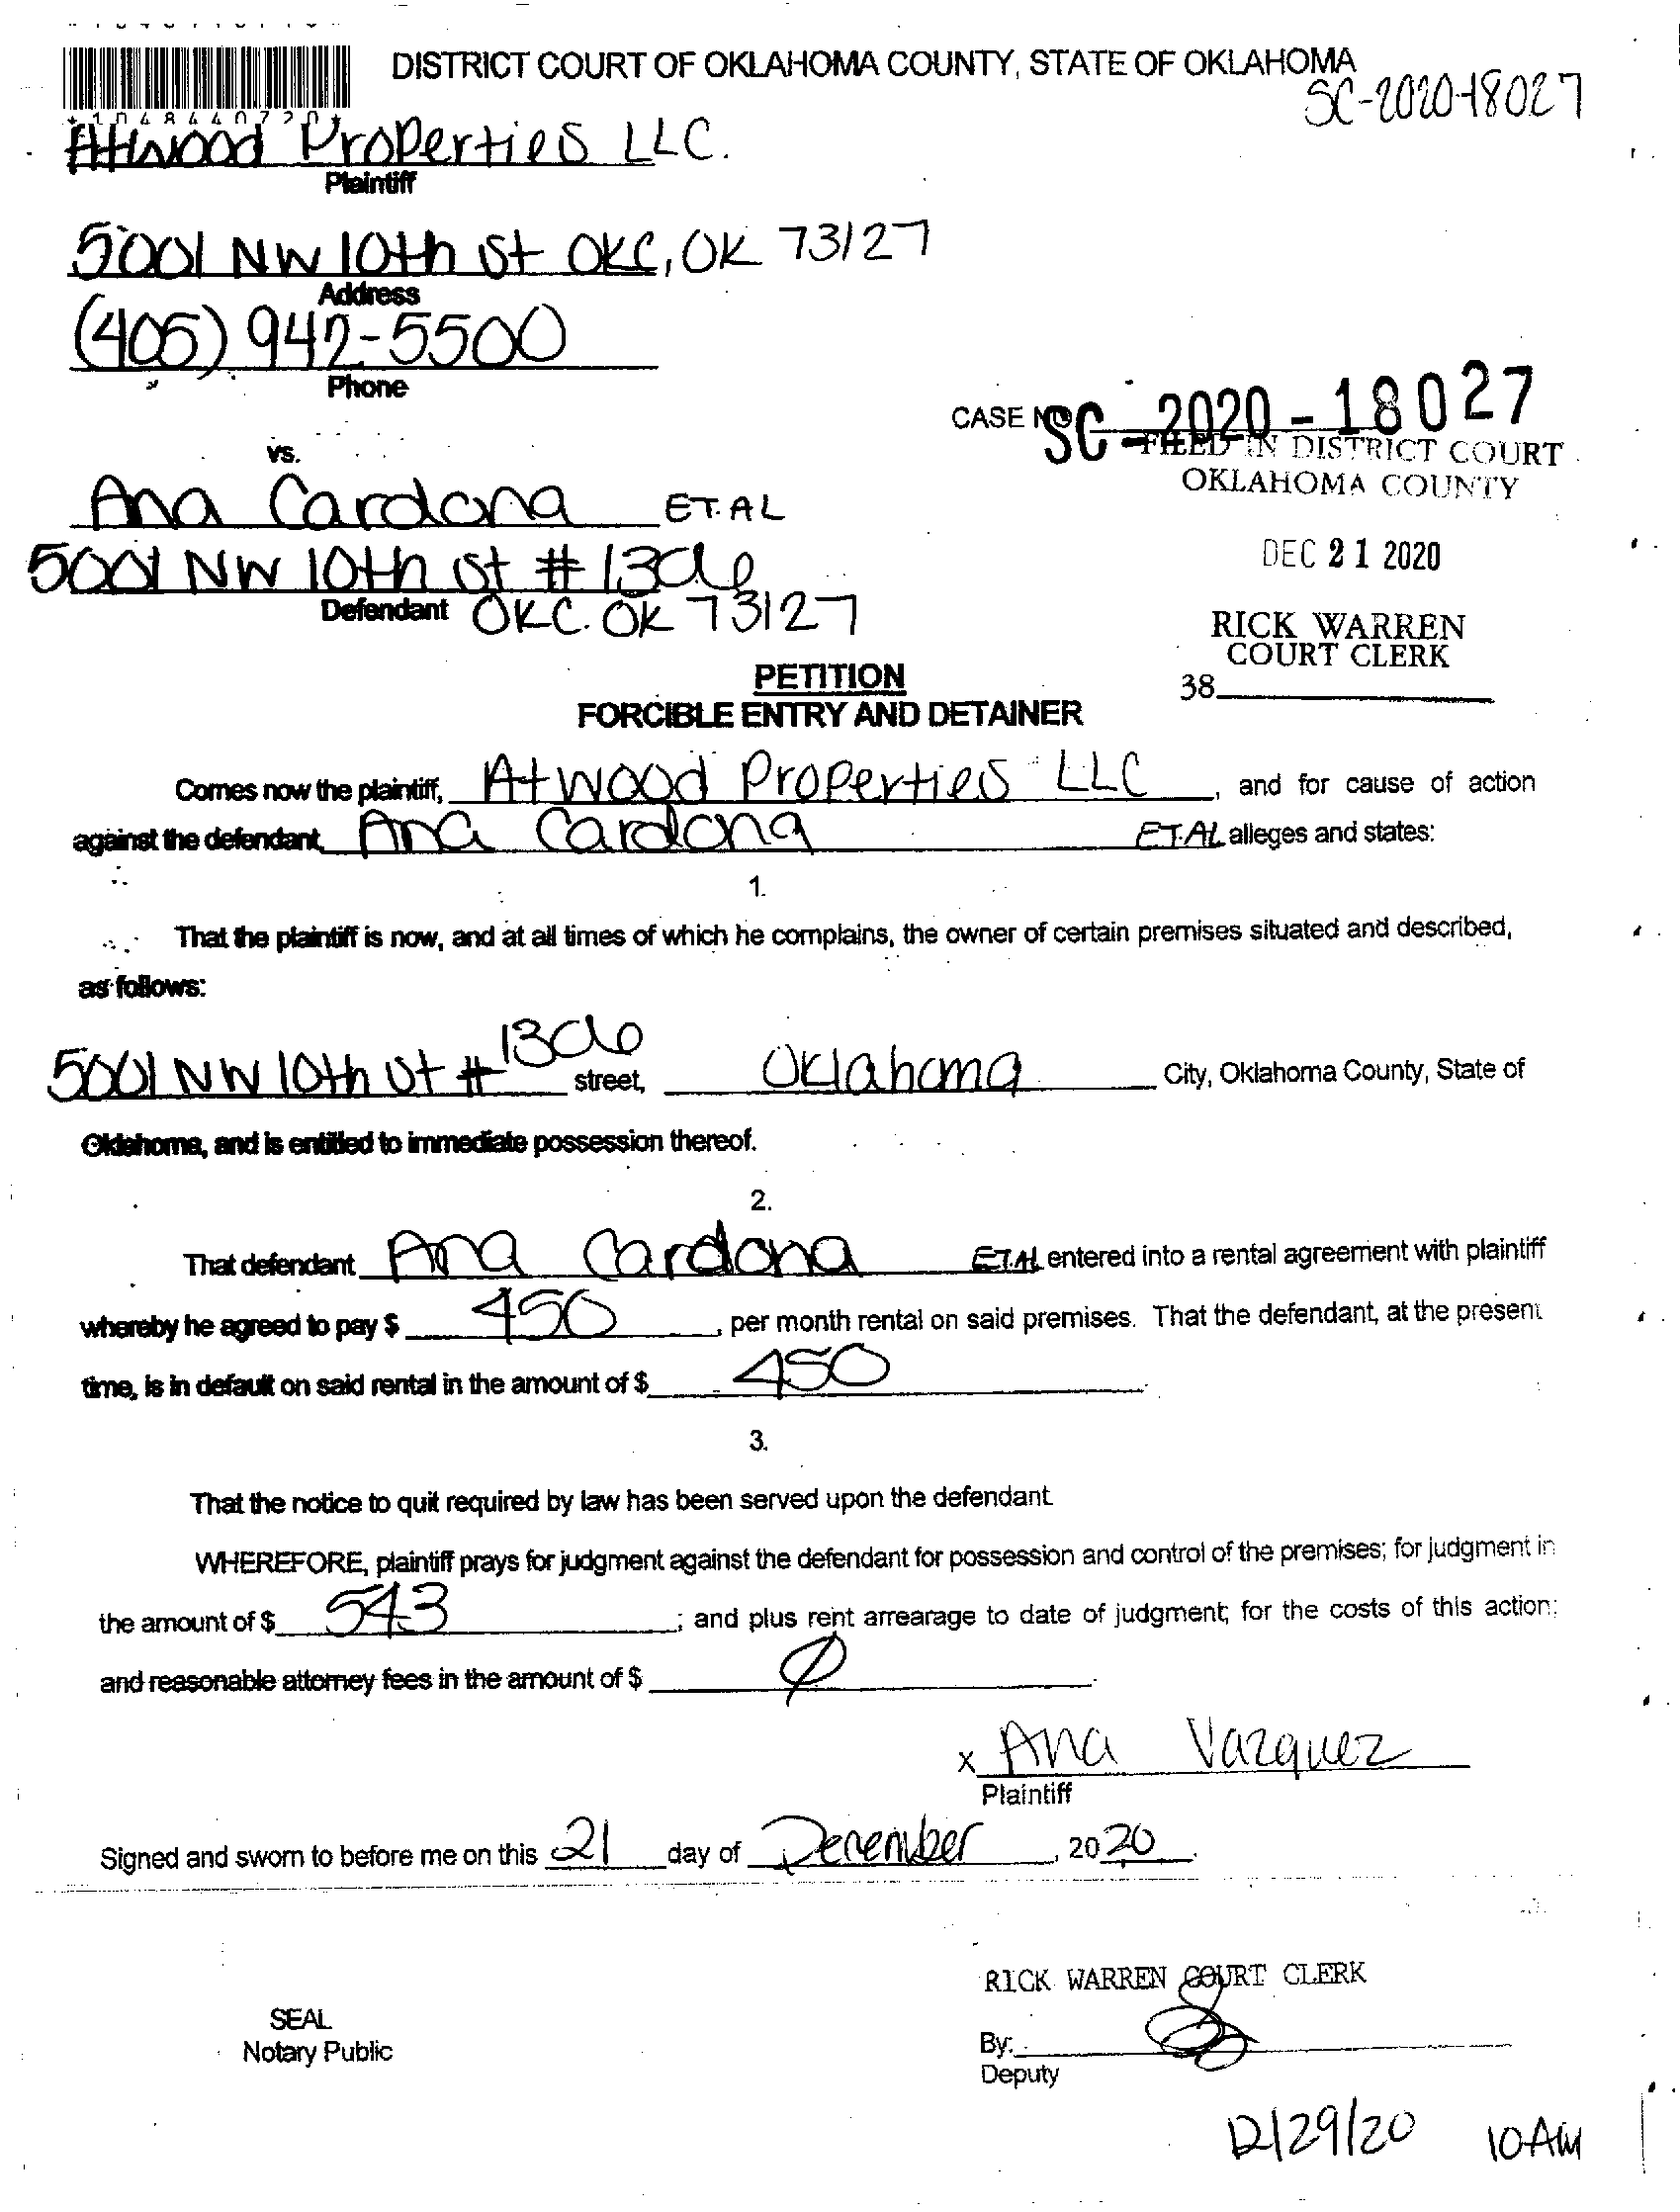 DISTRICT COURT OF OKLAHOMA COUNTY, STATE OF OKLAHOMA
SC-2020-18027
*1048440720*
Attwood Properties LLC.
Plaintiff
5001 NW 10th St OKC, OK 73127
Address
(405) 942-5500
Phone
CASE NO. SC-2020-18027
FILED IN DISTRICT COURT
OKLAHOMA COUNTY
vs.
Ana Cardona ET.AL
5001 NW 10th St #
DEC 21 2020
Defendant OKC. OK 73127
RICK WARREN
COURT CLERK
38
PETITION
FORCIBLE ENTRY AND DETAINER
Comes now the plaintiff, Atwood Properties LLC, and for cause of action
against the defendant, Ana Cardona ET.AL alleges and states:
1.
That the plaintiff is now, and at all times of which he complains, the owner of certain premises situated and described,
as follows:
5001 NW 10th St # street, Oklahoma City, Oklahoma County, State of
Oklahoma, and is entitled to immediate possession thereof.
2.
That defendant Ana Cardona ET.AL entered into a rental agreement with plaintiff
whereby he agreed to pay $ 450, per month rental on said premises. That the defendant, at the present
time, is in default on said rental in the amount of $ 450.
3.
That the notice to quit required by law has been served upon the defendant.
WHEREFORE, plaintiff prays for judgment against the defendant for possession and control of the premises; for judgment in
the amount of $ 543; and plus rent arrearage to date of judgment; for the costs of this action;
and reasonable attorney fees in the amount of $ Ø.
x Ana Vazquez
Plaintiff
Signed and sworn to before me on this 21 day of December, 2020.
RICK WARREN COURT CLERK
SEAL
Notary Public
By:
Deputy
12/29/20 10AM